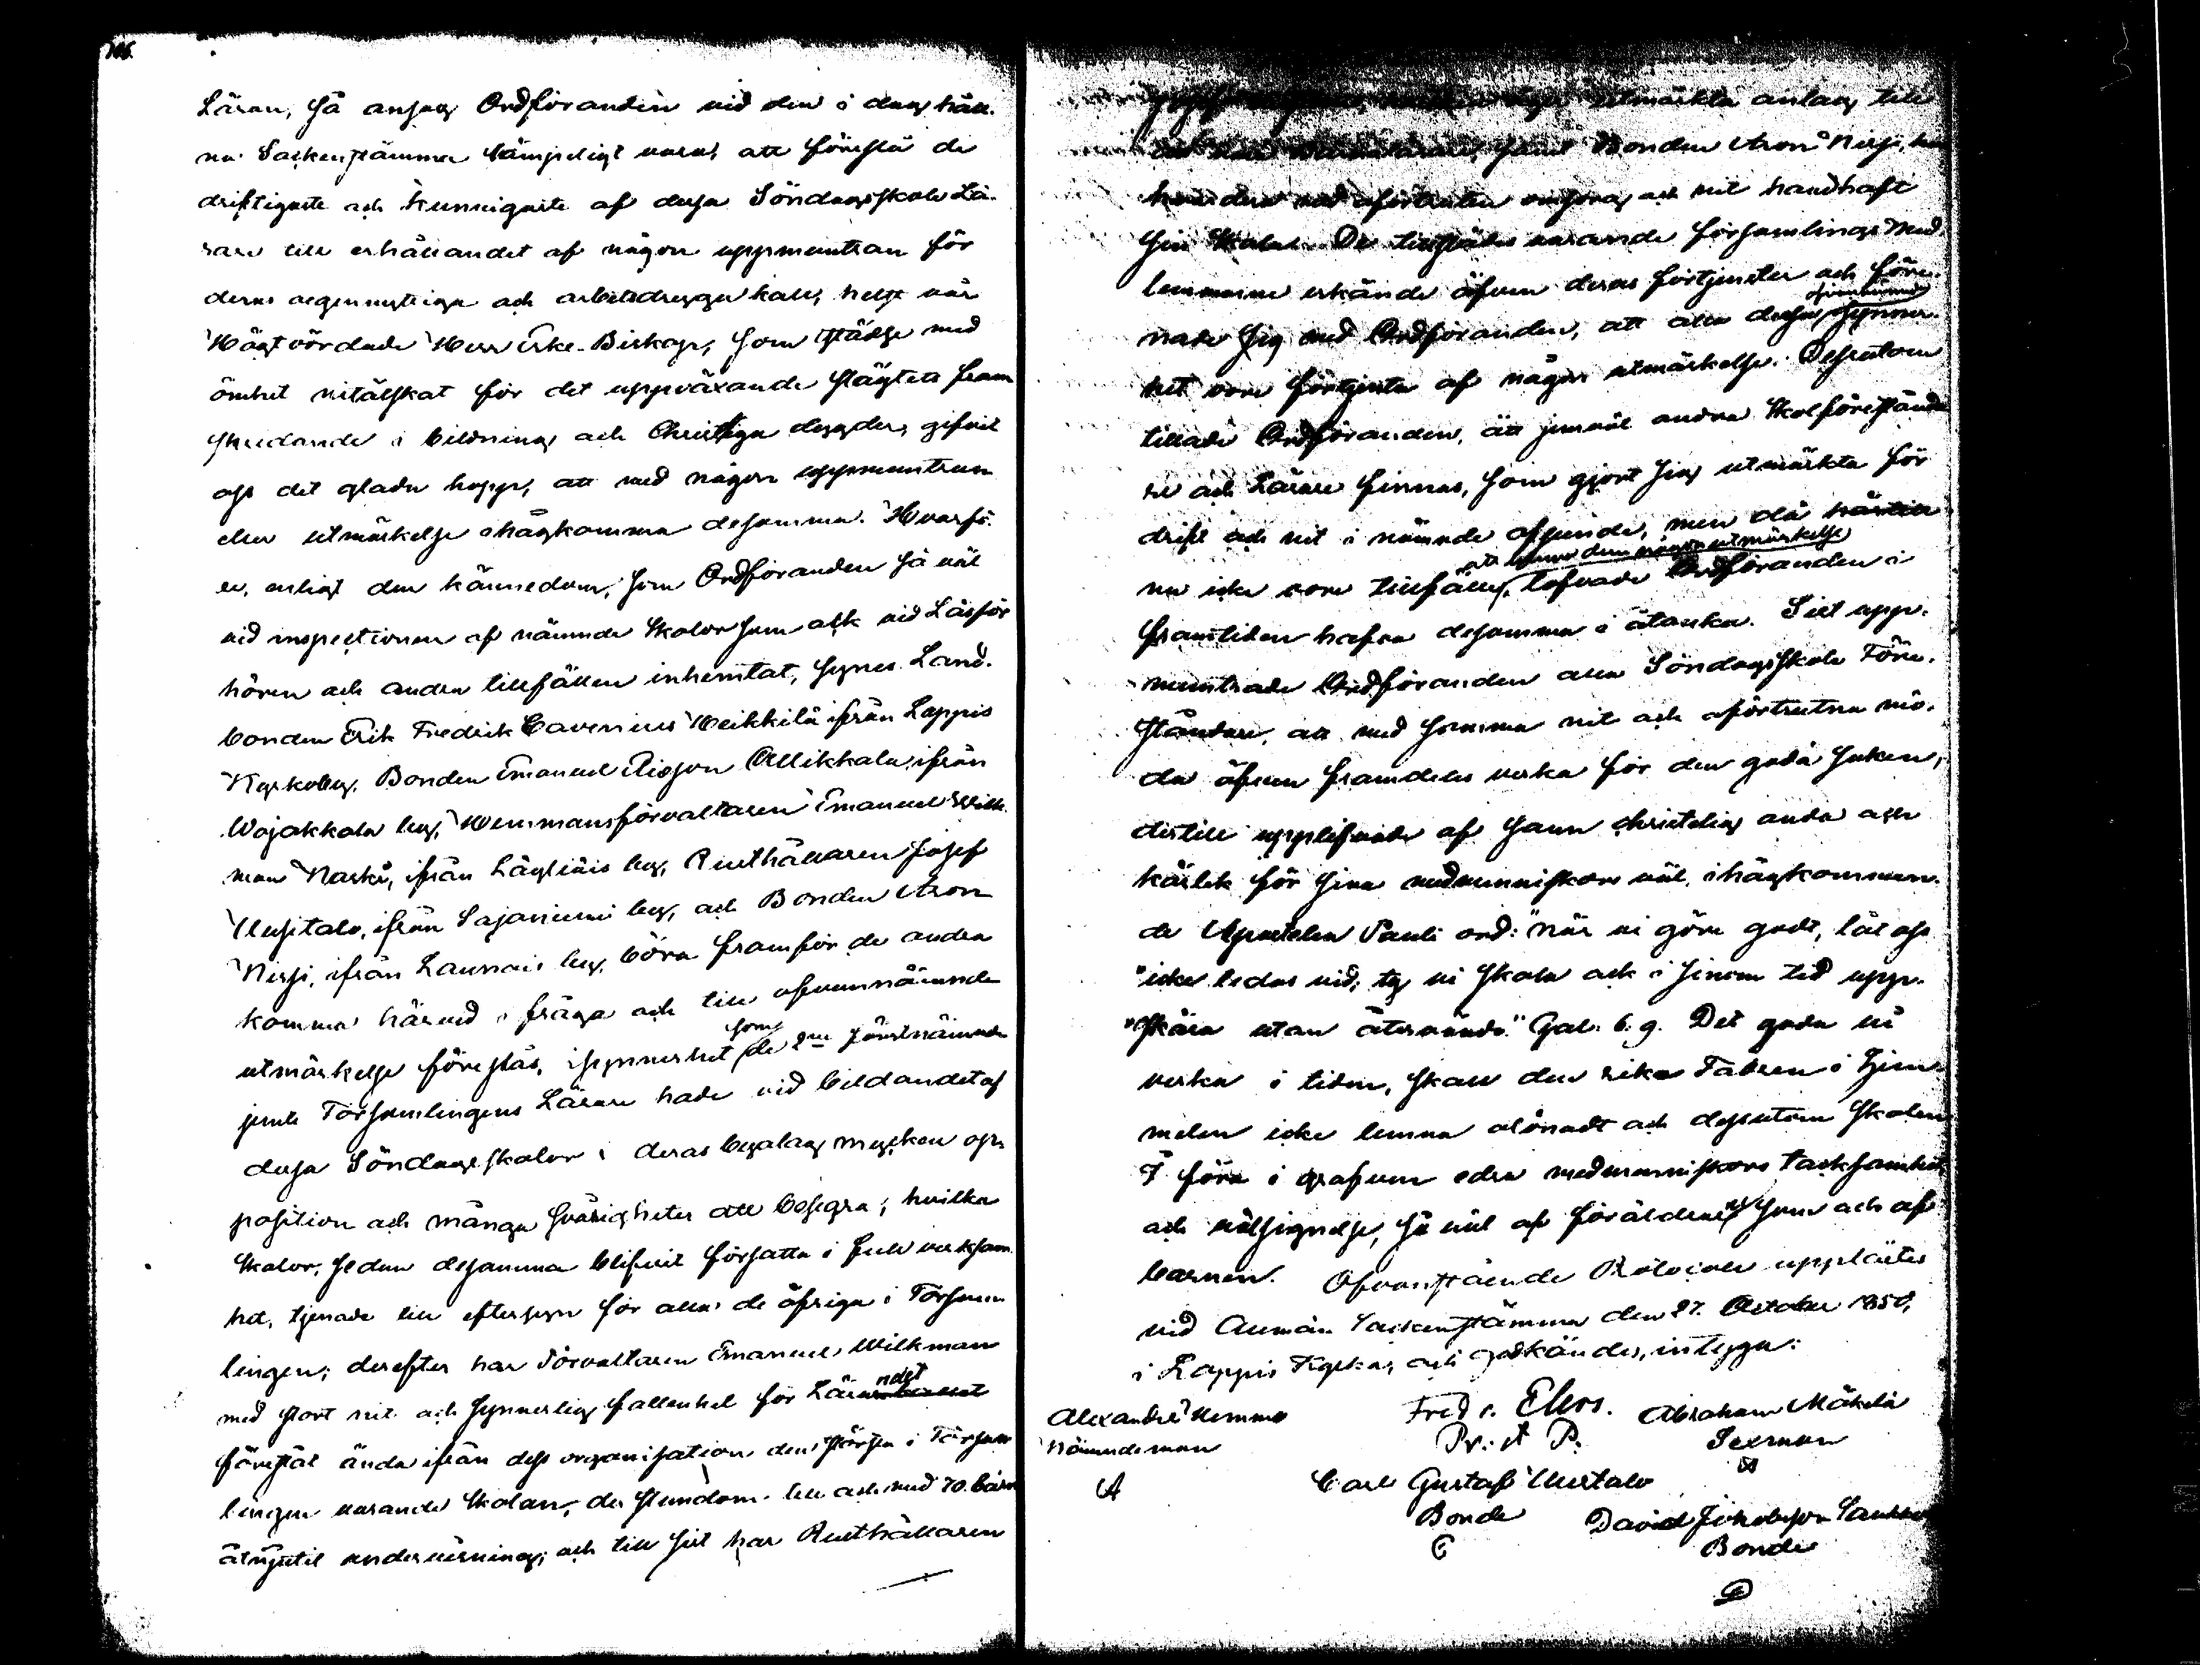 106.
Läran, så ansåg Ordföranden vid den i dag håll.
na Sockenstämma lämpeligt vara, att föreslå de
driftigaste och kunnigaste af dessa Söndagsskole Lä-
rare till erhållandet af någon uppmuntran för
deras oegennyttiga och arbetsdryga kall, helst vår
Högtvördade Herr Erke-Biskop, som städse med
ömhet nitälskat för det uppväxande slägtets fram
skridande i bildning och Christliga dygder, gifvit
oss det glada hopp, att med någon uppmuntran
eller utmärkelse ihågkomma desamma. Hvarfö.
re, enligt den kännedom, som Ordföranden så väl
vid inspectionen af nämnde Skolor som ock vid Läsför
hören och andra tillfällen inhemtat, synes Land.
bonden Erik Fredrik Cavenius Heikkilä ifrån Lappis
Kyrkoby, Bonden Emanuel Ollikkala, ifrån
Wojakkala by, Hemmansförvaltaren Emanuel Wilk.
man Narki, ifrån by, Rusthållaren Josef
Uusitalo, ifrån by, och Bonden Aron
Nissi, ifrån Launais by, böra framför de andra
komma härvid i fråga och till ofvannämnde
utmärkelse föreslås, isynnerhet som de 2ne förstnämnde
jemte Församlingens Lärare hade vid bildandet af
dessa Söndagsskolor i deras byalag mycken op-
position och många svårigheter att besegra; hvilka
Skolor, sedan desamma blifvit försatta i full verksam
het, tjenade till eftersyn för alla de öfriga i Försam
lingen; derefter har Förvaltaren Emanuel Wilkman
med stort nit och synnerlig fallenhet för Lärandet
förestått ända ifrån dess organisation den största i Försam
lingen varande Skolan, der stundom till och med 70 barn
åtnjutit undervisning; och till sist har Rusthållaren
utmärkta anlag till
samt Bonden Aron Nissi, har
med oförtruten omsorg och nit handhaft
sin Skola. De tillstädes varande Församlings Med.
lemmarne erkände äfven deras förtjenster och före.
nade sig med Ordföranden, att alla dessa synner.
het vore förtjenta af någon utmärkelse. Dessutom
tillade Ordföranden, att jemväl andra Skolföreståndare
re och Lärare finnas, som gjort sig utmärkta för
drift och nit i nämnde afseende, men då härtill
nu icke vore tillfälle, att lemna dem någon utmärkelse lofvade Ordföranden i
framtiden hafva desamma i åtanka. Sist upp.
muntrade Ordföranden alla Söndagsskole Före.
ståndare, att med samma nit och oförtrutna mö.
da äfven framdeles verka för den goda saken,
dertill upplifvade af sann christelig anda och
kärlek för sina medmenniskors väl, ihågkomman.
de Apostelen Pauli ord: "när vi göre godt, låt oss
"icke ledas vid, ty vi skola ock i sinom tid upp.
"skära utan återvändo." Gal. 6. 9. Det goda vi
verka i tiden, skall den rike Fadren i Him
melen icke lemna olönadt och dessutom skolen
I föra i grafven edra medmenniskors tacksamhet
och välsignelse, så väl af föräldrarne som och af
barnen. Ofvanstående Protocoll upplästes
vid Allmän Sockenstämma den 27. October 1850,
i Lappis Kyrka, och godkändes, intyga:
Fredr. Elers.
Pr. P.
Alexander Hemmo
Nämndeman
A
Abraham Mäkelä
Sexman
Carl Gustaf Uusitalo
Bonde
C
David Jakobsson
Bonde
D